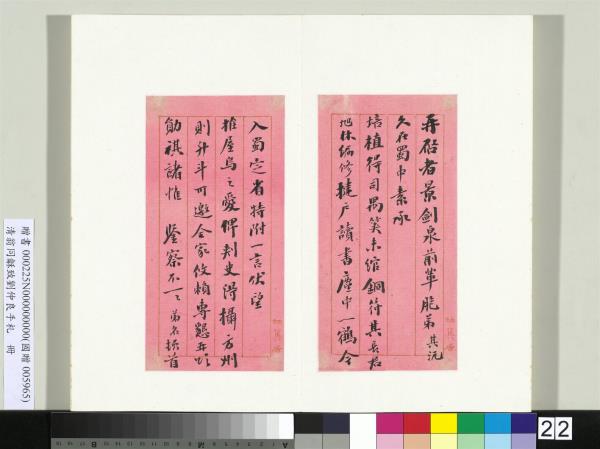 再啟者景劍泉前輩胞弟其沅
久在蜀中素承
培植得司馬笑未綰銅符其長君
旭林編修揵戶讀書廬中一鶴今
入蜀定省特附一言伏望
推屋烏之愛俾刺史得攝方州
則升斗可邀全家攸賴專懇再頌
勛祺諸惟 鑒察不一 弟名頓首
贈書 000225N000000000(國贈 005965)
清翁同龢致劉仲良手札 冊
22